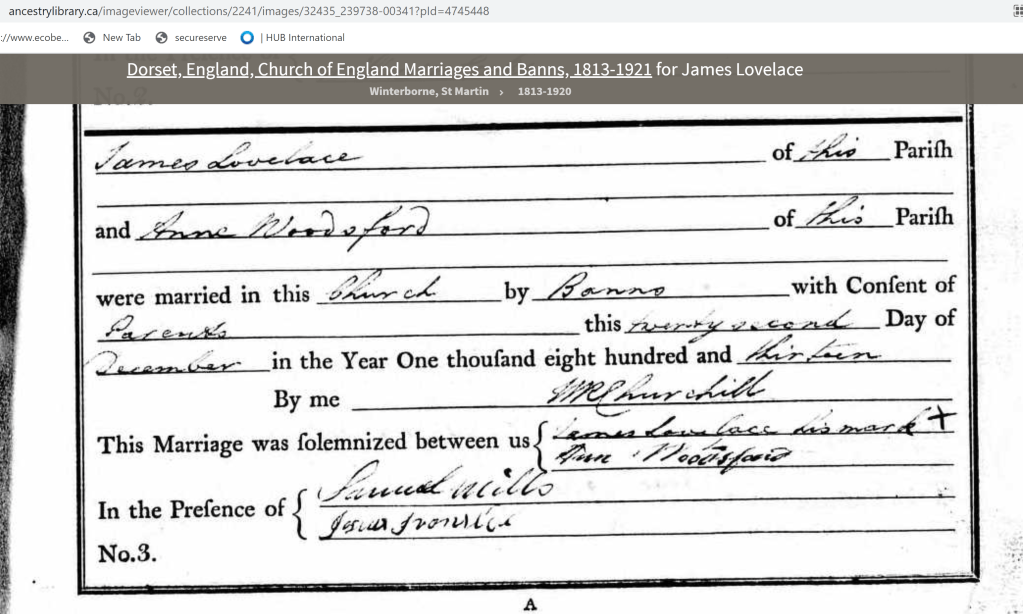 ancestrylibrary.ca/imageviewer/collections/2241/images/32435_239738-00341?pId=4745448
://www.ecobe... New Tab secureserve | HUB International
Dorset, England, Church of England Marriages and Banns, 1813-1921 for James Lovelace
Winterborne, St Martin › 1813-1920
James Lovelace of this Pariſh
and Anne Woodsford of this Pariſh
were married in this Church by Banns with Conſent of
Parents this twenty second Day of
December in the Year One thouſand eight hundred and thirteen
By me Churchill
This Marriage was ſolemnized between us { James Lovelace his mark +
Ann Woodsford
In the Preſence of { Samuel Mills
No.3.
A